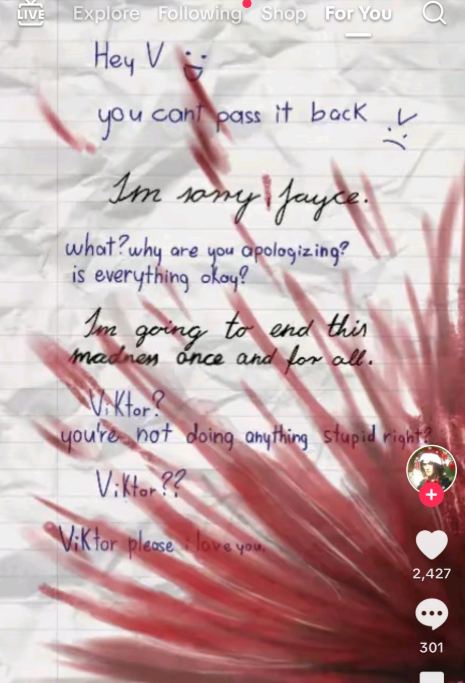 LIVE Explore Following Shop For You
Hey V
you cant pass it back
Im sorry Jayce.
what? why are you apologizing?
is everything okay?
Im going to end this
madness once and for all.
Viktor?
you're not doing anything stupid right?
Viktor??
Viktor please i love you.
2,427
301